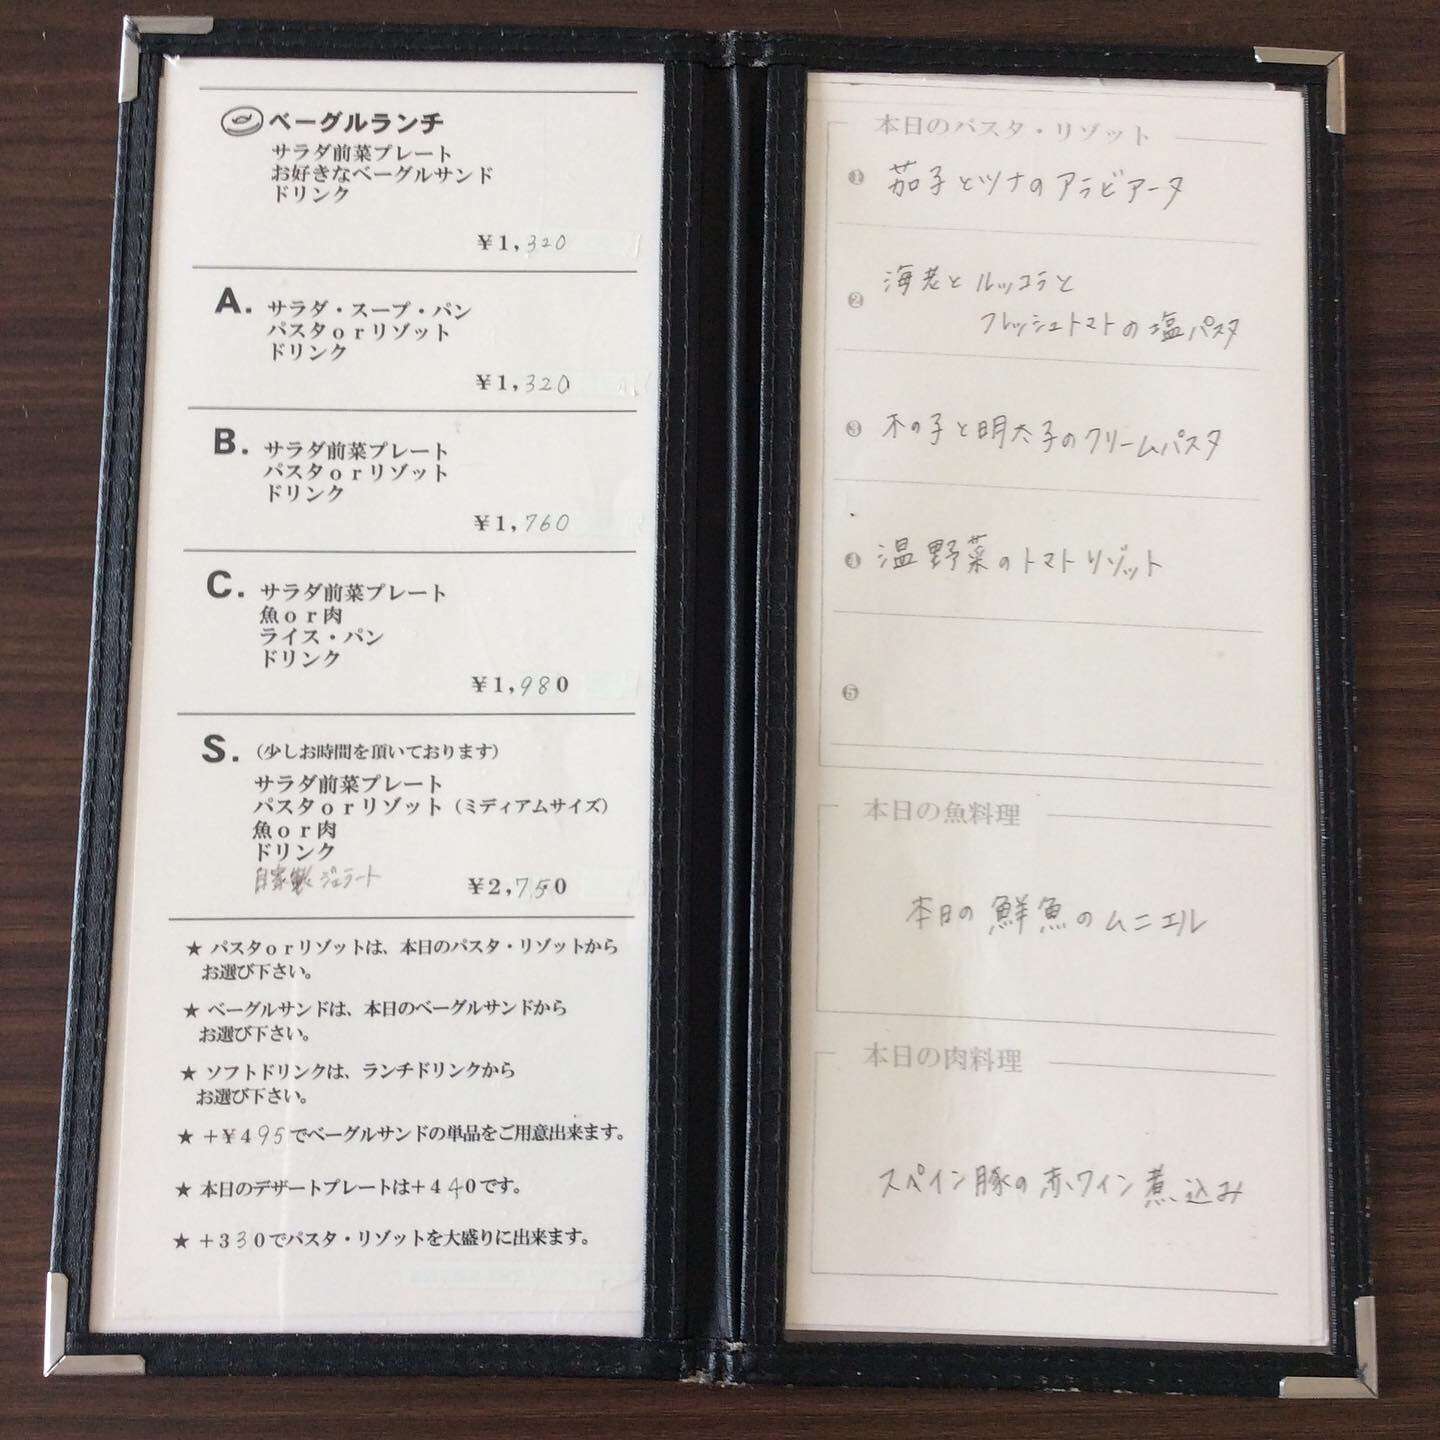 ベーグルランチ
サラダ前菜プレート
お好きなベーグルサンド
ドリンク
¥1,320
A. サラダ・スープ・パン
パスタorリゾット
ドリンク
¥1,320
B. サラダ前菜プレート
パスタorリゾット
ドリンク
¥1,760
C. サラダ前菜プレート
魚or肉
ライス・パン
ドリンク
¥1,980
S. (少しお時間を頂いております)
サラダ前菜プレート
パスタorリゾット(ミディアムサイズ)
魚or肉
ドリンク
自家製ジェラート
¥2,750
★ パスタorリゾットは、本日のパスタ・リゾットから
お選び下さい。
★ ベーグルサンドは、本日のベーグルサンドから
お選び下さい。
★ ソフトドリンクは、ランチドリンクから
お選び下さい。
★ +¥495でベーグルサンドの単品をご用意出来ます。
★ 本日のデザートプレートは+440です。
★ +330でパスタ・リゾットを大盛りに出来ます。
本日のパスタ・リゾット
❶ 茄子とツナのアラビアータ
❷ 海老とルッコラと
フレッシュトマトの塩パスタ
❸ 木の子と明太子のクリームパスタ
❹ 温野菜のトマトリゾット
❺
本日の魚料理
本日の鮮魚のムニエル
本日の肉料理
スペイン豚の赤ワイン煮込み